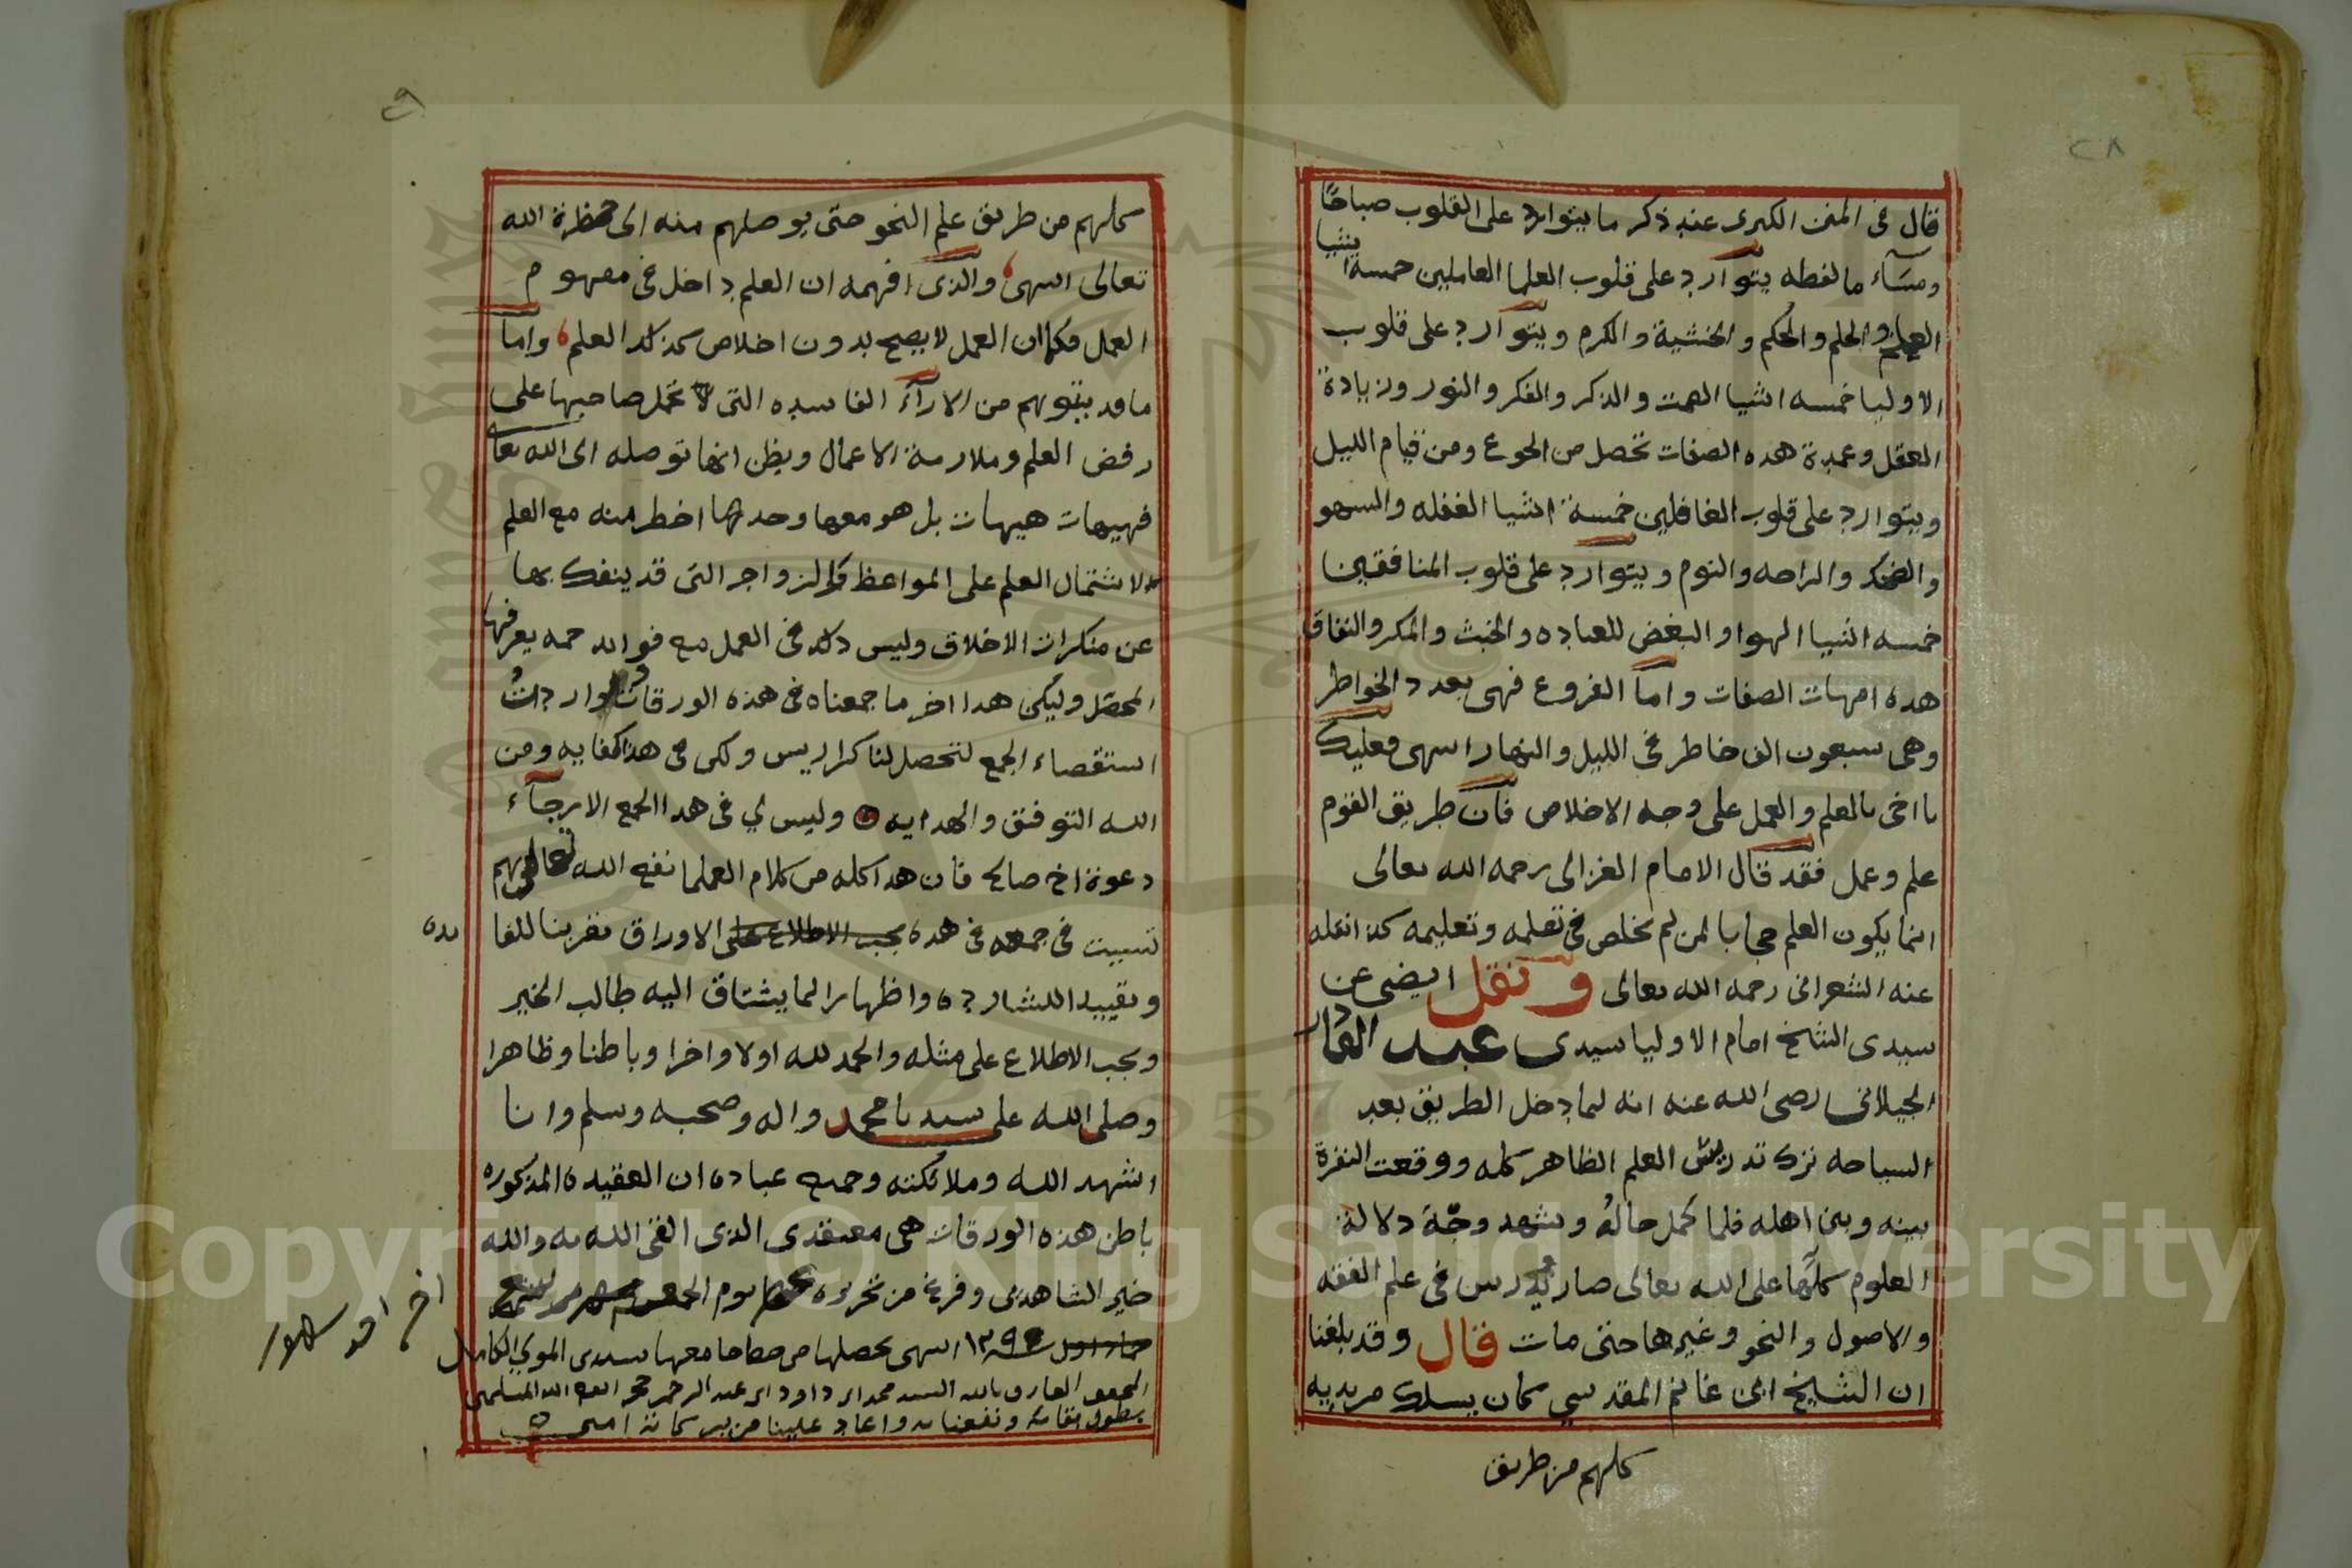 ٢٨
قال فى المنن الكبرى عند ذكر ما يتوارد على القلوب صباحًا
ومسآء ما لفظه يتوارد على قلوب العلما العاملين خمسة اشيا
العلم والحلم والحكم والخشية والكرم ويتوارد على قلوب
الاوليا خمسه اشيا الصمت والذكر والفكر والنور وزيادة
العقل وعمدة هده الصفات تحصل من الجوع ومن قيام الليل
ويتوارد على قلوب الغافلين خمسة اشيا الغفله والسهو
والضحك والراحه والنوم ويتوارد على قلوب المنافقين
خمسه اشيا الهوا والبغض للعباده والخبث والمكر والنفاق
هده امهات الصفات واما الفروع فهى بعدد الخواطر
وهى سبعون الف خاطر فى الليل والنهار انتهى فعليك
يا اخى بالعلم والعمل على وجه الاخلاص فان طريق القوم
علم وعمل فقد قال الامام الغزالى رحمه الله تعالى
انما يكون العلم حجابا لمن لم يخلص فى تعلمه وتعليمه كذا نقله
عنه الشعرانى رحمه الله تعالى ونقل ايضى عن
سيدى الشيخ امام الاوليا سيدى عبد القادر
الجيلانى رضى الله عنه انه لما دخل الطريق بعد
السياحه ترك تدريس العلم الظاهر كله ووقعت النفرة
بينه وبين اهله فلما كمل حالهُ وشهد وجّهَ دلالة
العلوم كلها على الله تعالى صار يدرس فى علم الفقه
والاصول والنحو وغيرها حتى مات قال وقد بلغنا
ان الشيخ ابن غانم المقدسي كان يسلك مريديه
كلهم من طريق
كلهم من طريق علم النحو حتى يوصلهم منه الى حظرة الله
تعالى انتهى والذى افهمه ان العلم داخل فى مفهوم
العمل فكما ان العمل لا يصح بدون اخلاص كذلك العلم واما
ما قد يتوهم من الارآء الفاسده التى تحمل صاحبها على
رفض العلم وملازمة الاعمال ويظن انها توصله الى الله تعا
فهيهات هيهات بل هو معها وحدها اخطر منه مع العلم
لاشتمال العلم على المواعظ والزواجر التى قد ينفك بها
عن منكرات الاخلاق وليس ذلك فى العمل مع فوايد جمه يعرفها
المحصل وليكن هدا اخر ما جمعناه فى هذه الورقات ولو اردتُ
استقصاء الجمع لتحصل لنا كراريس ولكن فى هذا كفايه ومن
الله التوفيق والهدايه وليس لي فى هدا الجمع الا رجآء
دعوة اخ صالح فان هدا كله من كلام العلما نفع الله تعالى بهم
تسببت فى جمعه فى هده الاوراق تقريبا للفا
يده
وتقييدا للشارده واظهارا لما يشتاق اليه طالب الخير
ويجب الاطلاع على مثله والحمد لله اولا واخرا وباطنا وظاهرا
وصلى الله على سيدنا محمد واله وصحبه وسلم وانا
اشهد الله وملائكته وجميع عباده ان العقيده المذكوره
باطن هذه الورقات هى معتقدى الذى القى الله به والله
خير الشاهدين وفرغ من تحريره يوم
جماد اول سنه انتهى تحصلها من خط جامعها سيدى المولي الكامل
المحقق العارف بالله السيد محمد ابن داود ابن عبد الرحمن حجر القديمى المسلمين
بطول بقائه ونفعنا به واعاد علينا من بركاته امين
Copyright © King Saud University
1957